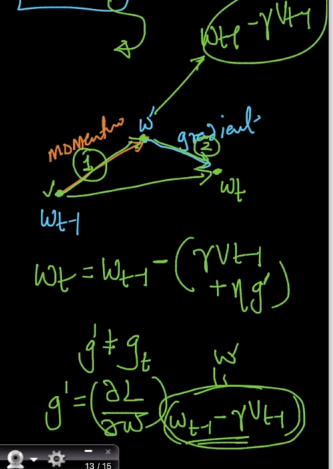 w_{t-1} - γV_{t-1}
momentum
1
w'
gradient
2
w_t
w_{t-1}
w_t = w_{t-1} - (γV_{t-1}
+ ηg')
g' ≠ g_t
w'
g' = (∂L/∂w) (w_{t-1} - γV_{t-1})
13 / 15